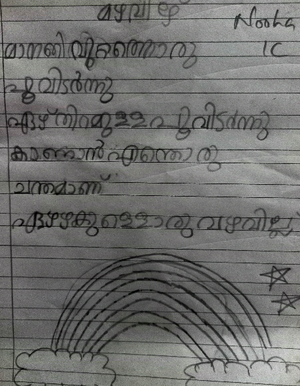 മഴവില്ല്
Nooha
മാനത്തിമുറ്റത്തൊരു 1C
പൂവിടർന്നു
ഏഴ് നിറമുള്ള പൂവിടർന്നു
കാണാൻ എന്തൊരു
ചന്തമാണ്
ഏഴഴകുള്ളൊരു മഴവില്ല്